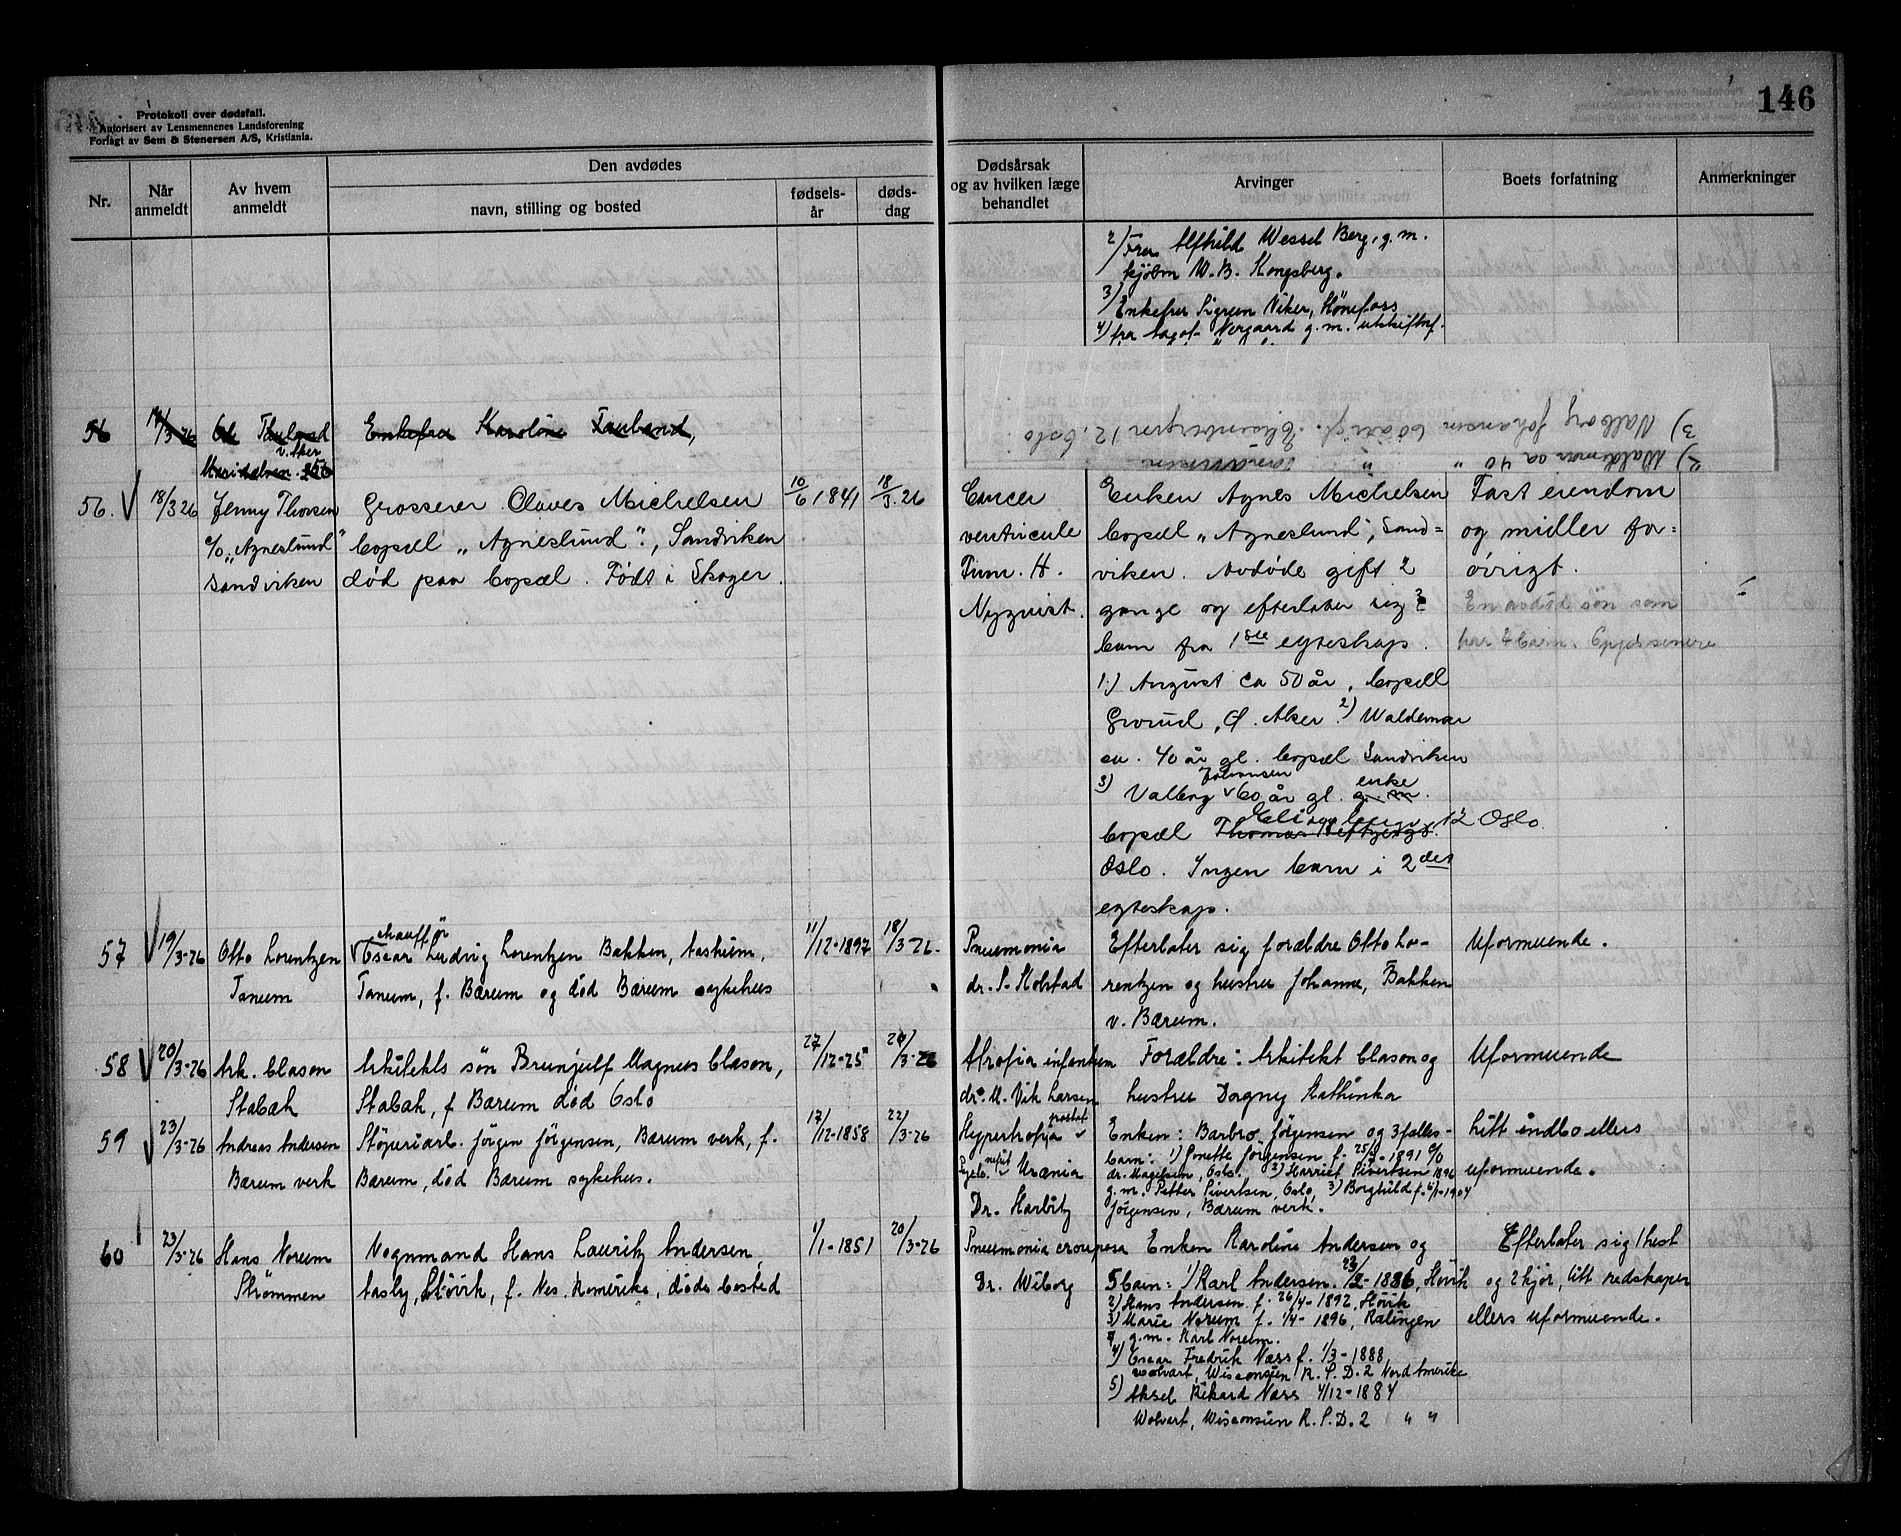 Protokoll over dødsfall.
Autorisert av Lensmennenes Landsforening
Forlagt av Sem & Stenersen A/S, Kristiania.
146
Nr.
Når anmeldt
Av hvem anmeldt
Den avdødes
navn, stilling og bosted
fødsels-år
døds-dag
Dødsårsak og av hvilken læge behandlet
Arvinger
Boets forfatning
Anmerkninger
2) Fru Alfhild Wessel Berg, g.m.
kjøbm W. B. Kongsberg.
3) Enkefru Sigrun Viker, Hönefoss
4) fru Nergaard g.m.
3) Valborg Johansen 60 år gl. 12. Oslo
2) Waldemar ca 40 " " Sandviken
56 17/3-26 Ole Tauland Enkefru Karoline Tauland,
v. Aker
Maridalsvn.
56. 18/3 26 Jenny Thorsen Grosserer Olaves Michelsen 10/6 1841 18/3. 26 Cancer Enken Agnes Michelsen Fast eiendom
c/o „Agneslund" bopæl „Agneslund", Sandviken ventricule bopæl „Agneslund", Sand= og midler for=
Sandviken død paa bopæl. Født i Skoger. Fum. H. viken. Avdøde gift 2 øvrigt.
Nyquist. gange og efterlater sig 3 En avdød søn som
barn fra 1ste egteskap. har 4 barn. Opgis senere
1.) August ca 50 år, bopæll
Grorud, Ø. Aker. 2) Waldemar
ca. 40 år gl. bopæl Sandviken
3) Valborg Johansen 60 år gl. g. m. enke
bopæl 12 Oslo
Oslo. Ingen barn i 2det
egteskap.
57 19/3-26 Otto Lorentzen chauffør Oscar Ludvig Lorentzen Bakken, Aasheim, 11/12-1897 18/3-26. Pneumonia Efterlater sig forældre Otto Lo- Uformuende.
Tanum Tanum, f. Bærum og död Bærum sykehus dr. S. Kolstad rentzen og hustru Johanne, Bakken
v. Bærum.
58 20/3-26 Ark. Clason Arkitekts søn Brunjulf Magnus Clason, 27/12-25 20/3-26 Atrofia infantum Forældre: Arkitekt Clason og Uformuende
Stabæk Stabæk, f Bærum död Oslo dr. M. Vik Larsen hustru Dagny Kathinka
59 23/3-26 Andreas Andersen Stöperiarb. Jörgen Jörgensen, Bærum verk, f. 17/12-1858 22/3-26 Hypertrofia prostat Enken: Barbro Jörgensen og 3 fælles- Litt indbo ellers
Bærum verk Bærum, död Bærum sykehus. Pyelo. nefrit Uræmia barn: 1) Jonette Jörgensen f. 25/9-1891 c/o uformuende.
dr. Magelssen, Oslo. 2) Harriet Sivertsen 1896
g.m. Petter Sivertsen, Oslo, 3) Borghild f. 6/1-1904
Dr. Harbitz Jörgensen, Bærum verk.
60 23/3-26 Hans Noreum Vognmand Hans Lauritz Andersen, 1/1-1851 20/3-26 Pneumonia crouposa Enken Karoline Andersen og Efterlater sig 1 hest
Strömmen Aasly, Hövik, f. Nes. Romerike, döde bosted Dr. Wiborg 5 barn: 1) Karl Andersen. 23/2-1886, Hövik og 2 kjør, litt redskaper
2) Hans Andersen f. 26/4-1892, Hövik ellers uformuende.
3) Marie Norum f. 1/4-1896, Rælingen
g.m. Karl Noreum.
4) Oscar Fredrik Næss f. 1/3-1888
Wolvart, Wisconsien R.S.D. 2 Nord Amerika
5) Aksel Rikard Næss 4/12-1884
Wolvart, Wisconsien R.S.D. 2 " "